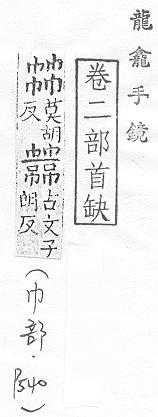 龍龕手鏡
卷二部首缺
莫胡反 古文子朗反
（巾部·P540）